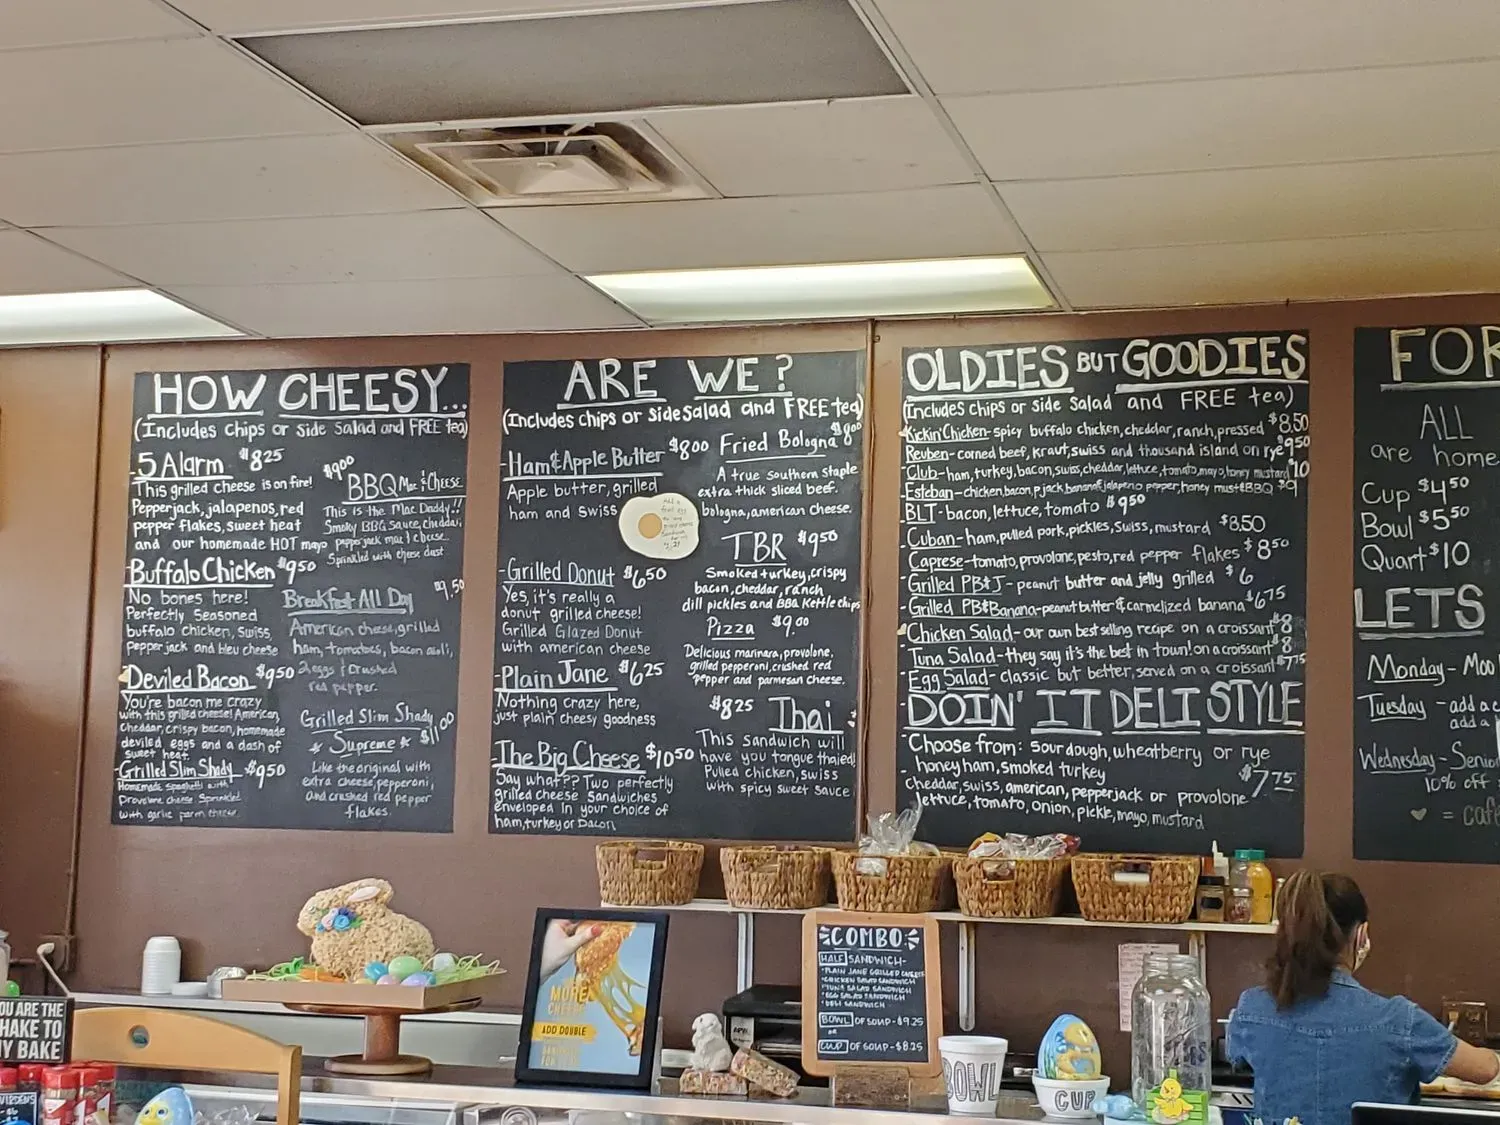 HOW CHEESY...
(Includes chips or side Salad and FREE tea)
5 Alarm $8.25
This grilled cheese is on fire!
Pepperjack, jalapenos, red
pepper flakes, sweet heat
and our homemade HOT mayo
Buffalo Chicken $9.50
No bones here!
Perfectly Seasoned
buffalo chicken, swiss,
pepper jack and bleu cheese
Deviled Bacon $9.50
You're bacon me crazy
with this grilled cheese! American,
cheddar, crispy bacon, homemade
deviled eggs and a dash of
sweet heat.
Grilled Slim Shady $9.50
Homemade spaghetti with
Provolone cheese Sprinkled
with garlic parm cheese.
$9.00
BBQ Mac & Cheese
This is the Mac Daddy!!
Smoky BBQ Sauce, cheddar,
pepperjack mac & cheese
Sprinkled with cheese dust
$9.50
Breakfast All Day
American cheese, grilled
ham, tomatoes, bacon aioli,
2 eggs & crushed
red pepper.
Grilled Slim Shady
* Supreme * $11.00
Like the original with
extra cheese, pepperoni,
and crushed red pepper
flakes.
ARE WE?
(Includes chips or side salad and FREE tea)
-Ham & Apple Butter $8.00
Apple butter, grilled
ham and Swiss
-Grilled Donut $6.50
Yes, it's really a
donut grilled cheese!
Grilled Glazed Donut
with american cheese
-Plain Jane $6.25
Nothing crazy here,
just plain cheesy goodness
The Big Cheese $10.50
Say what?? Two perfectly
grilled cheese Sandwiches
enveloped in your choice of
ham, turkey or Bacon
Fried Bologna $8.00
A true southern staple
extra thick sliced beef
bologna, american cheese.
TBR $9.50
Smoked turkey, crispy
bacon, cheddar, ranch
dill pickles and BBQ Kettle chips
Pizza $9.00
Delicious marinara, provolone,
grilled pepperoni, crushed red
pepper and parmesan cheese.
$8.25 Thai
This Sandwich will
have you tongue thaied!
Pulled chicken, swiss
with spicy sweet sauce
OLDIES BUT GOODIES
(Includes chips or side salad and FREE tea)
Kickin' Chicken- spicy buffalo chicken, cheddar, ranch, pressed $8.50
Reuben- corned beef, kraut, swiss and thousand island on rye $9.50
Club- ham, turkey, bacon, swiss, cheddar, lettuce, tomato, mayo, honey mustard $10
Esteban- chicken, bacon, p.jack, banana & jalapeno pepper, honey must & BBQ $9
BLT- bacon, lettuce, tomato $9.50
Cuban- ham, pulled pork, pickles, swiss, mustard $8.50
Caprese- tomato, provolone, pesto, red pepper flakes $8.50
Grilled PB&J- peanut butter and jelly grilled $6
Grilled PB&Banana- peanut butter & carmelized banana $6.75
Chicken Salad- our own best selling recipe on a croissant $8
Tuna Salad- they say it's the best in town! on a croissant $8
Egg Salad- classic but better, served on a croissant $7.75
DOIN' IT DELI STYLE
Choose from: sourdough, wheatberry or rye
honey ham, smoked turkey
cheddar, swiss, american, pepperjack or provolone $7.75
lettuce, tomato, onion, pickle, mayo, mustard
FOR
ALL
are home
Cup $4.50
Bowl $5.50
Quart $10
LETS
Monday- Moo
Tuesday - add a c
add a
Wednesday- Senio
10% off
♥ = cafe
MORE
CHEESE
ADD DOUBLE
COMBO:
HALF SANDWICH-
*PLAIN JANE GRILLED CHEESE
*CHICKEN SALAD SANDWICH
*TUNA SALAD SANDWICH
*EGG SALAD SANDWICH
*DELI SANDWICH
BOWL OF SOUP-$9.25
or
CUP OF SOUP-$8.25
BOWL
CUP
OU ARE THE
HAKE TO
Y BAKE